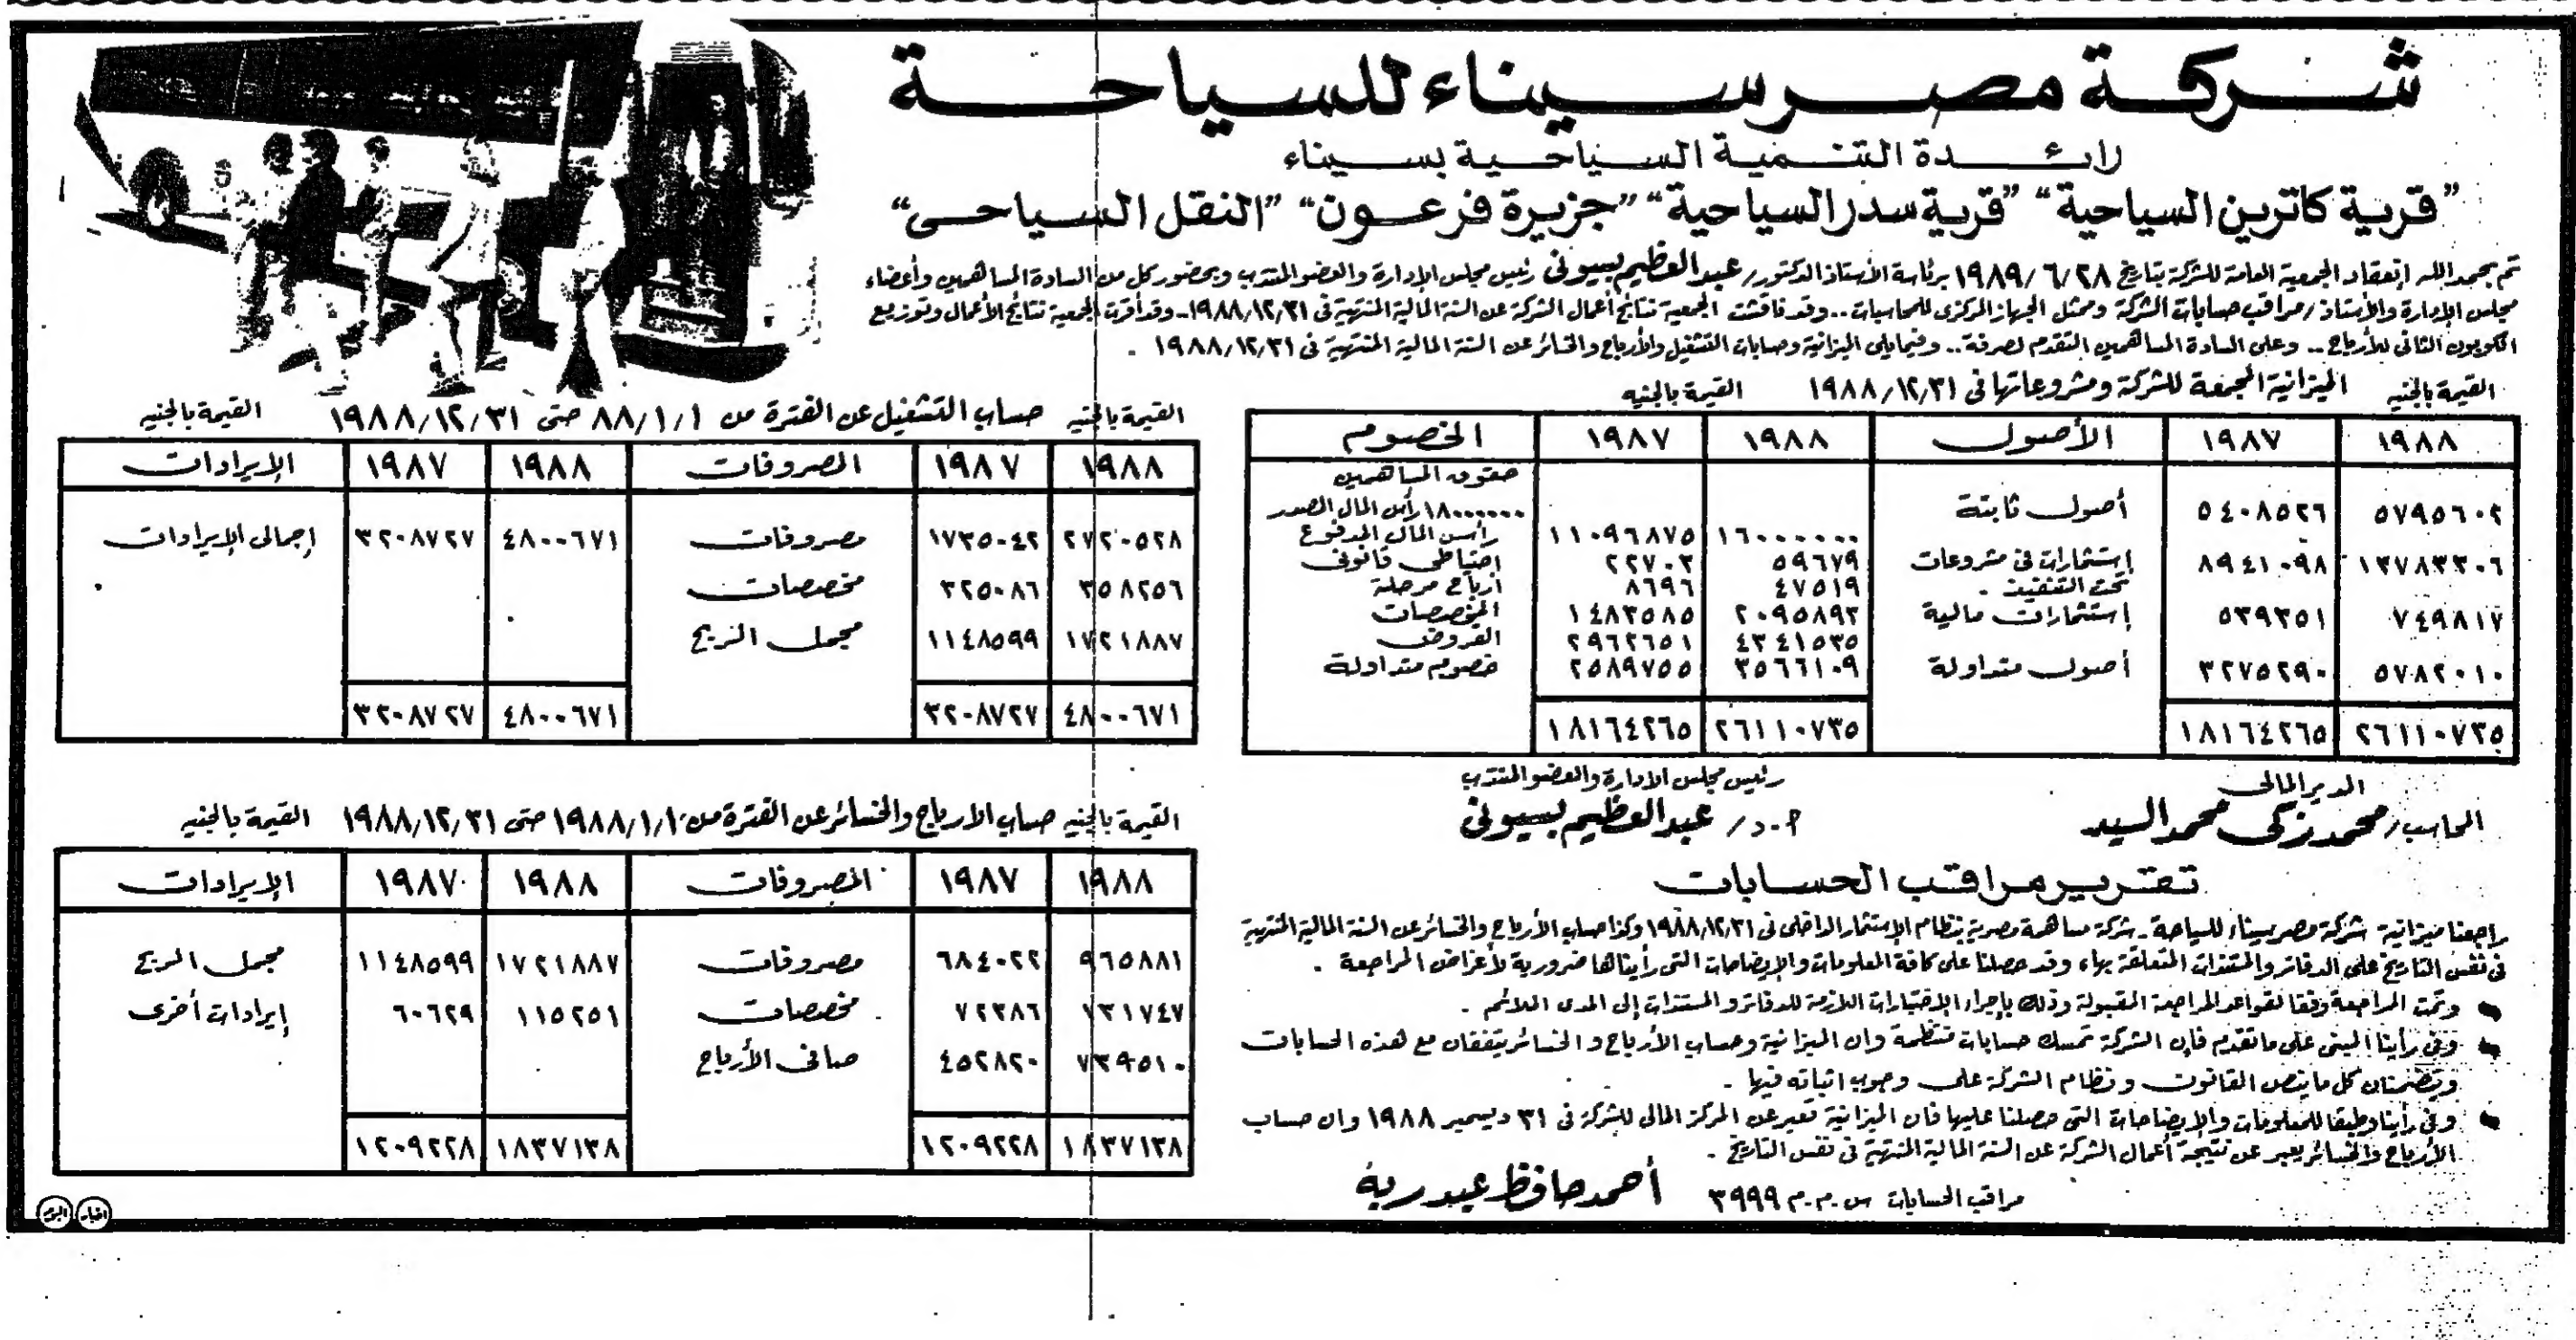 شركة مصر سيناء للسياحة
رائدة التنمية السياحية بسيناء
"قرية كاترين السياحية" "قرية سدر السياحية" "جزيرة فرعون" "النقل السياحى"
تم بحمد الله إنعقاد الجمعية العامة للشركة بتاريخ ٢٨/ ٦/ ١٩٨٩ برئاسة الأستاذ الدكتور/ عبد العظيم بسيونى رئيس مجلس الإدارة والعضو المنتدب وبحضور كل من السادة المساهمين وأعضاء
مجلس الإدارة والأستاذ /مراقب حسابات الشركة وممثل الجهاز المركزى للمحاسبات .. وقد ناقشت الجمعية نتائج أعمال الشركة عن السنة المالية المنتهية فى ٣١/ ١٢/ ١٩٨٨ - وقد أقرت الجمعية نتائج الأعمال وتوزيع
الكوبون الثانى للأرباح .. وعلى السادة المساهمين التقدم لصرفة .. وفيما يلى الميزانية وحسابات التشغيل والأرباح والخسائر عن السنة المالية المنتهية فى ٣١/ ١٢/ ١٩٨٨ .
القيمة بالجنيه الميزانية المجمعة للشركة ومشروعاتها فى ٣١/ ١٢/ ١٩٨٨ القيمة بالجنيه
١٩٨٨ ١٩٨٧ الأصول ١٩٨٨ ١٩٨٧ الخصوم
حقوق المساهمين
٥٧٩٥٦٠٢ ٥٤٠٨٥٢٦ أصول ثابتة ١٨٠٠٠٠٠٠ رأس المال المصدر
١٦٠٠٠٠٠٠ ١١٠٩٦٨٧٥ رأس المال المدفوع
١٣٧٨٣٣٠٦ ٨٩٤١٠٩٨ إستثمارات فى مشروعات ٥٩٦٧٩ ٢٢٧٠٣ إحتياطى قانونى
تحت التنفيذ . ٤٧٥١٩ ٨٦٩٦ أرباح مرحلة
٧٤٩٨١٧ ٥٣٩٣٥١ إستثمارات مالية ٢٠٩٥٨٩٣ ١٤٨٣٥٨٥ المخصصات
٤٣٤١٥٣٥ ٢٩٦٢٦٥١ القروض
٥٧٨٢٠١٠ ٣٢٧٥٢٩٠ أصول متداولة ٣٥٦٦١٠٩ ٢٥٨٩٧٥٥ خصوم متداولة
٢٦١١٠٧٣٥ ١٨١٦٤٢٦٥ ٢٦١١٠٧٣٥ ١٨١٦٤٢٦٥
المدير المالى
المحاسب/ محمد زكى محمد السيد
رئيس مجلس الادارة والعضو المنتدب
أ.د/ عبد العظيم بسيونى
تقرير مراقب الحسابات
راجعنا ميزانية شركة مصر سيناء للسياحة - شركة مساهمة مصرية بنظام الإستثمار الداخلى فى ٣١/ ١٢/ ١٩٨٨ وكذا حساب الأرباح والخسائر عن السنة المالية المنتهية
فى نفس التاريخ على الدفاتر والمستندات المتعلقة بها، وقد حصلنا على كافة المعلومات والإيضاحات التى رأيناها ضرورية لأغراض المراجعة .
وتمت المراجعة وفقا لقواعد المراجعة المقبولة وذلك بإجراء الإختبارات اللازمة للدفاتر والمستندات إلى المدى الملائم .
وفى رأينا المبنى على ما تقدم فإن الشركة تمسك حسابات منتظمة وان الميزانية وحساب الأرباح والخسائر يتفقان مع هذه الحسابات
ويتضمنان كل ما ينص القانون ونظام الشركة على وجوب اثباته فيها .
وفى رأينا وطبقا للمعلومات والإيضاحات التى حصلنا عليها فان الميزانية تعبر عن المركز المالى للشركة فى ٣١ ديسمبر ١٩٨٨ وان حساب
الأرباح والخسائر يعبر عن نتيجة أعمال الشركة عن السنة المالية المنتهية فى نفس التاريخ .
مراقب الحسابات س.م.م ٣٩٩٩ أحمد حافظ عبد ربه
القيمة بالجنيه حساب التشغيل عن الفترة من ١/ ١/ ٨٨ حتى ٣١/ ١٢/ ١٩٨٨ القيمة بالجنيه
١٩٨٨ ١٩٨٧ المصروفات ١٩٨٨ ١٩٨٧ الإيرادات
٢٧٢٠٥٢٨ ١٧٣٥٠٤٢ مصروفات ٤٨٠٠٦٧١ ٣٢٠٨٧٢٧ إجمالى الإيرادات
٣٥٨٢٥٦ ٣٢٥٠٨٦ مخصصات
١٧٢١٨٨٧ ١١٤٨٥٩٩ مجمل الربح
٤٨٠٠٦٧١ ٣٢٠٨٧٢٧ ٤٨٠٠٦٧١ ٣٢٠٨٧٢٧
القيمة بالجنيه حساب الأرباح والخسائر عن الفترة من ١/ ١/ ١٩٨٨ حتى ٣١/ ١٢/ ١٩٨٨ القيمة بالجنيه
١٩٨٨ ١٩٨٧ المصروفات ١٩٨٨ ١٩٨٧ الإيرادات
٩٦٥٨٨١ ٦٨٤٠٢٢ مصروفات ١٧٢١٨٨٧ ١١٤٨٥٩٩ مجمل الربح
١٣١٧٤٧ ٧٢٣٨٦ مخصصات ١١٥٢٥١ ٦٠٦٢٩ إيرادات أخرى
٧٣٩٥١٠ ٤٥٢٨٢٠ صافى الأرباح
١٨٣٧١٣٨ ١٢٠٩٢٢٨ ١٨٣٧١٣٨ ١٢٠٩٢٢٨
اخبار اليوم